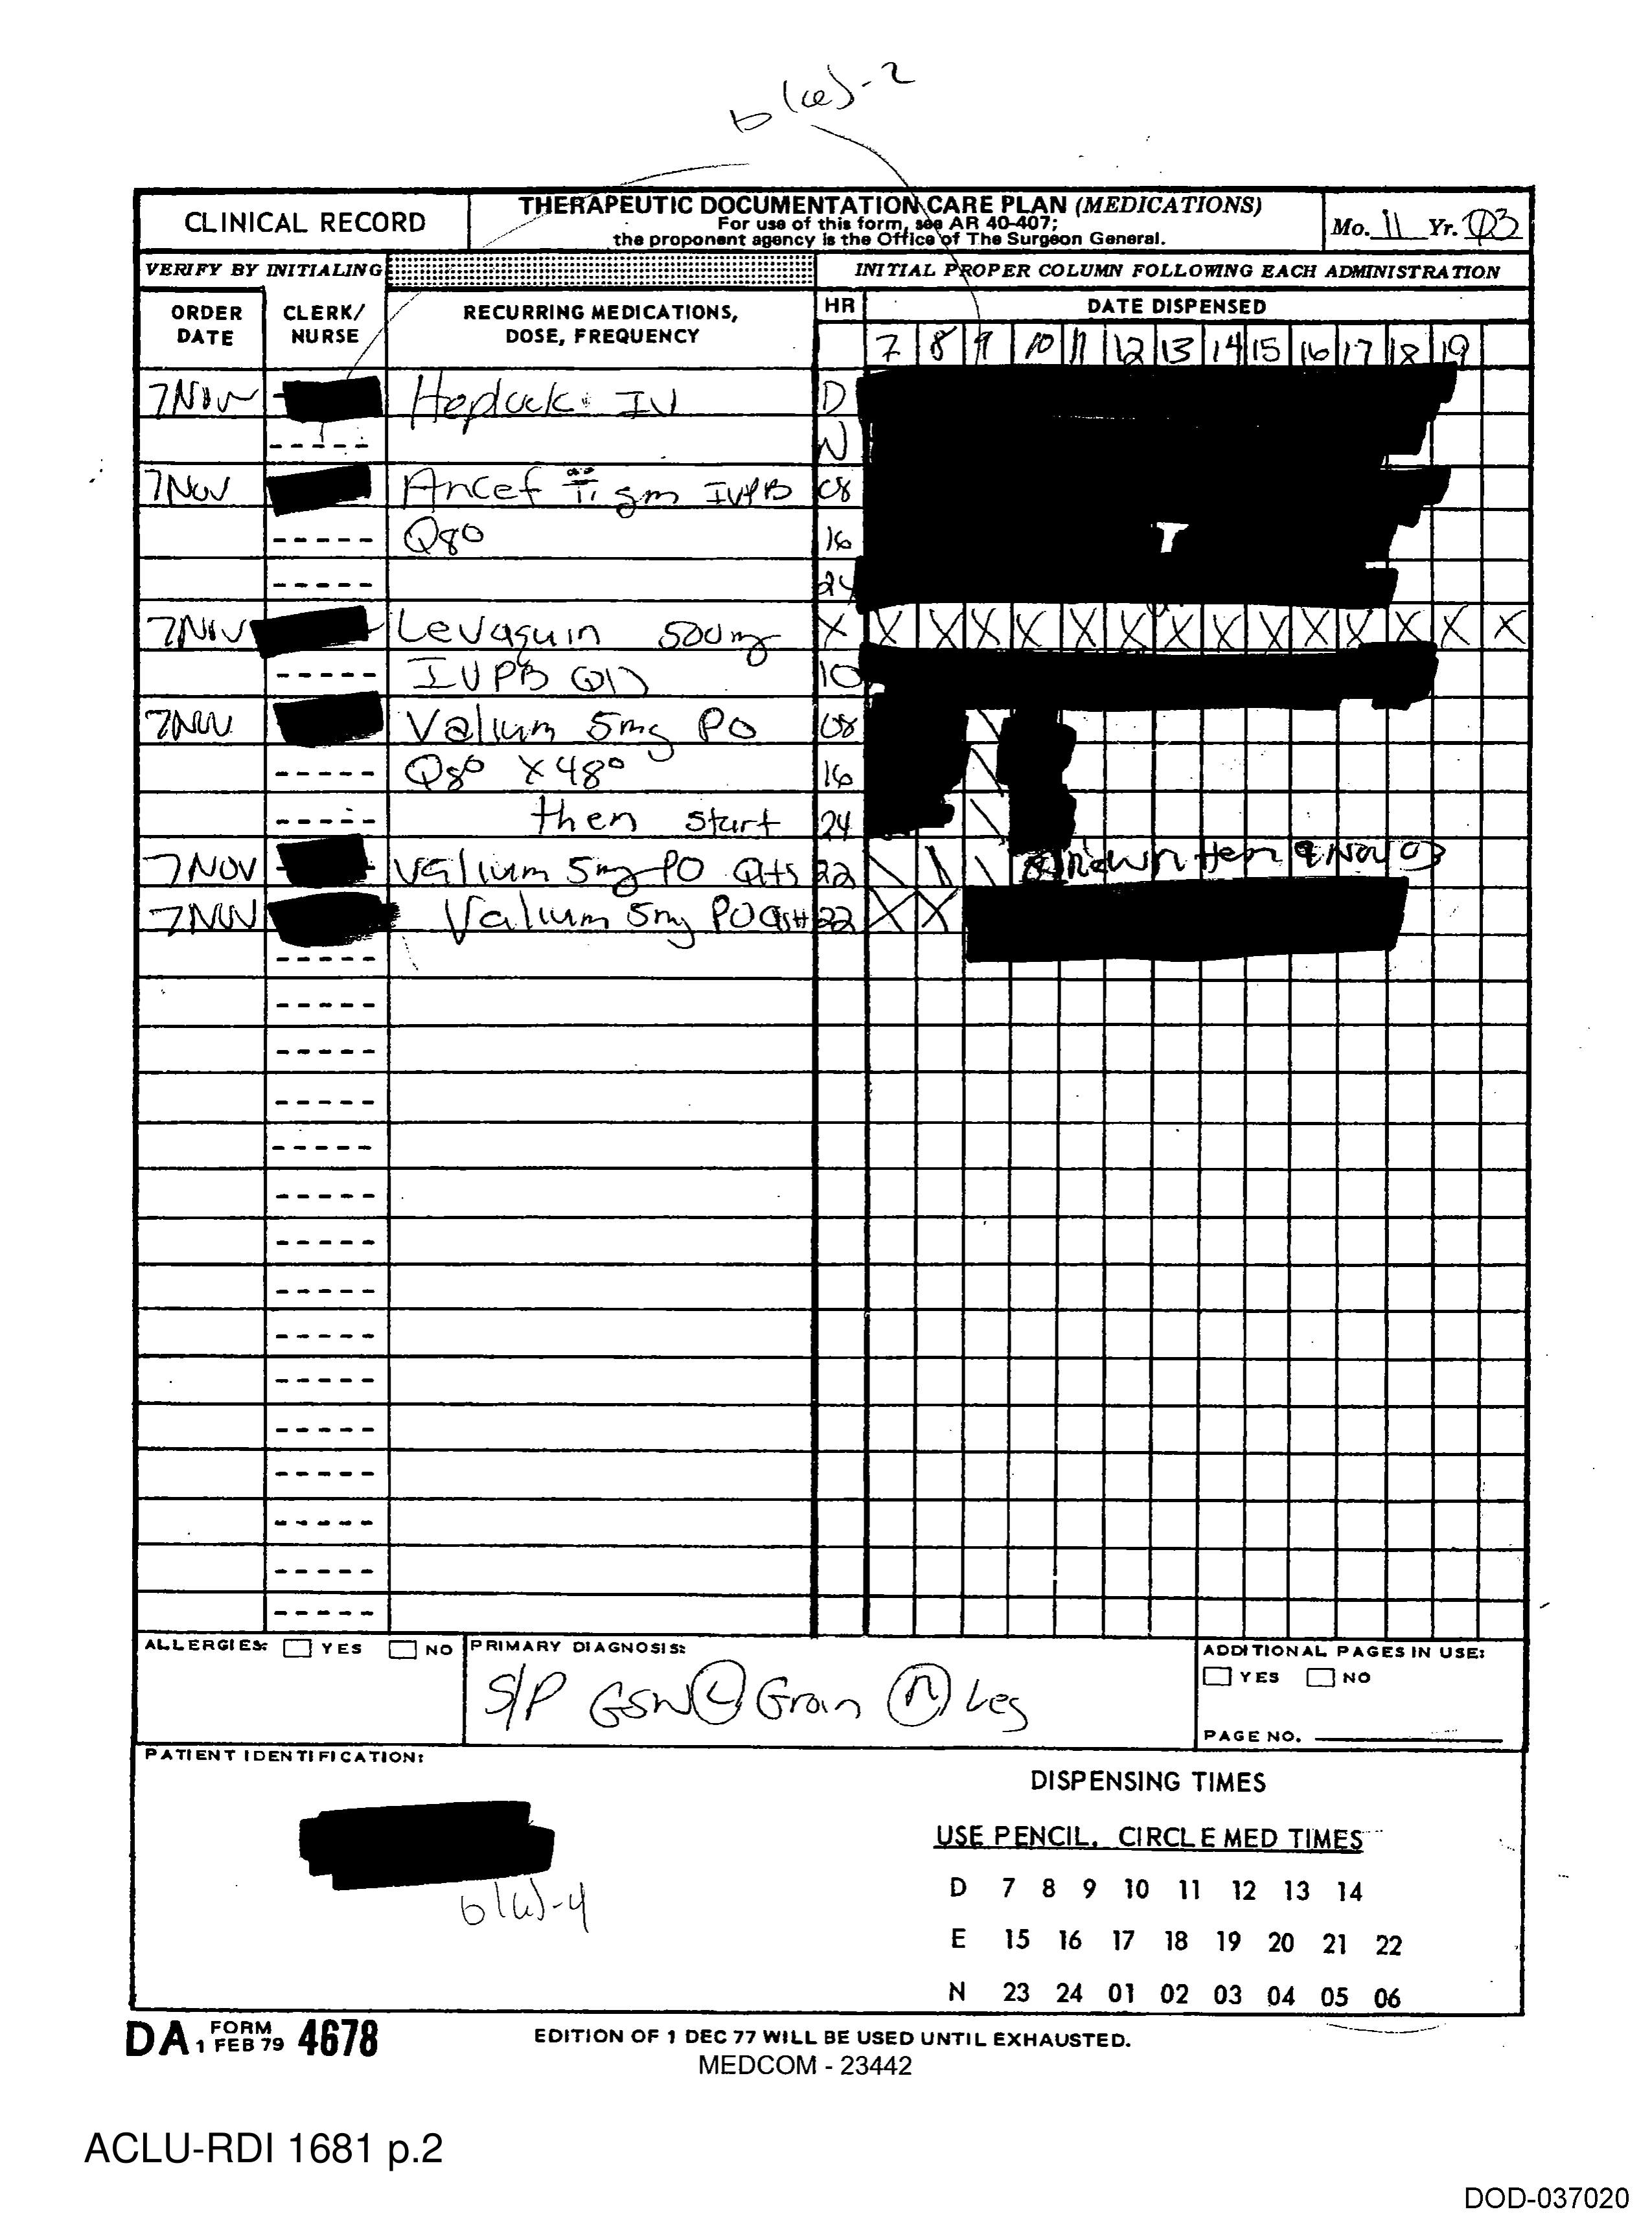 b(6)-2
CLINICAL RECORD
THERAPEUTIC DOCUMENTATION CARE PLAN (MEDICATIONS)
For use of this form, see AR 40-407;
the proponent agency is the Office of The Surgeon General.
Mo. 11 Yr. 03
VERIFY BY INITIALING
INITIAL PROPER COLUMN FOLLOWING EACH ADMINISTRATION
ORDER DATE
CLERK/ NURSE
RECURRING MEDICATIONS, DOSE, FREQUENCY
HR
DATE DISPENSED
7 8 9 10 11 12 13 14 15 16 17 18 19
7 Nov Heplock IV D
N
7 Nov Ancef ii gm IVPB 08
Q8° 16
24
7 Nov Levaquin 500mg X X X X X X X X X X X X X X X
IVPB QD 10
7 Nov Valium 5mg PO 08
Q8° X 48° 16
then start 24
7 NOV Valium 5mg PO QHS 22 9 Nov 03
7 Nov Valium 5mg PO QHS 22 X X
ALLERGIES: YES NO
PRIMARY DIAGNOSIS:
S/P GSW (L) Groin (R) Leg
ADDITIONAL PAGES IN USE:
YES NO
PAGE NO.
PATIENT IDENTIFICATION:
b(6)-4
DISPENSING TIMES
USE PENCIL. CIRCLE MED TIMES
D 7 8 9 10 11 12 13 14
E 15 16 17 18 19 20 21 22
N 23 24 01 02 03 04 05 06
DA FORM 4678
1 FEB 79
EDITION OF 1 DEC 77 WILL BE USED UNTIL EXHAUSTED.
MEDCOM - 23442
ACLU-RDI 1681 p.2
DOD-037020